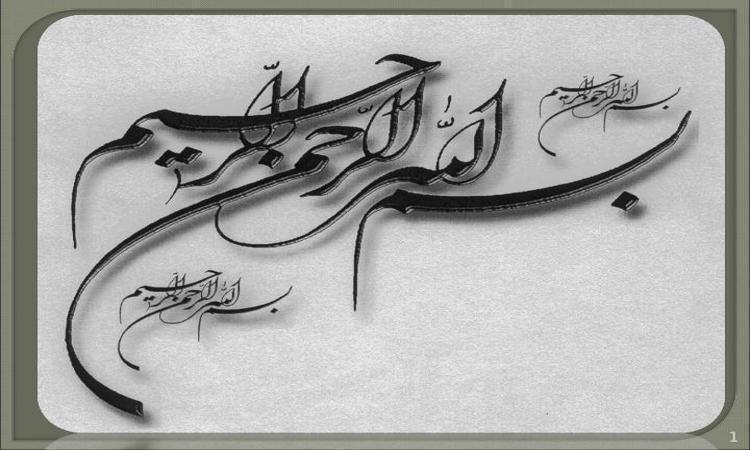 بسم الله الرحمن الرحیم
بسم الله الرحمن الرحیم
بسم الله الرحمن الرحیم
1